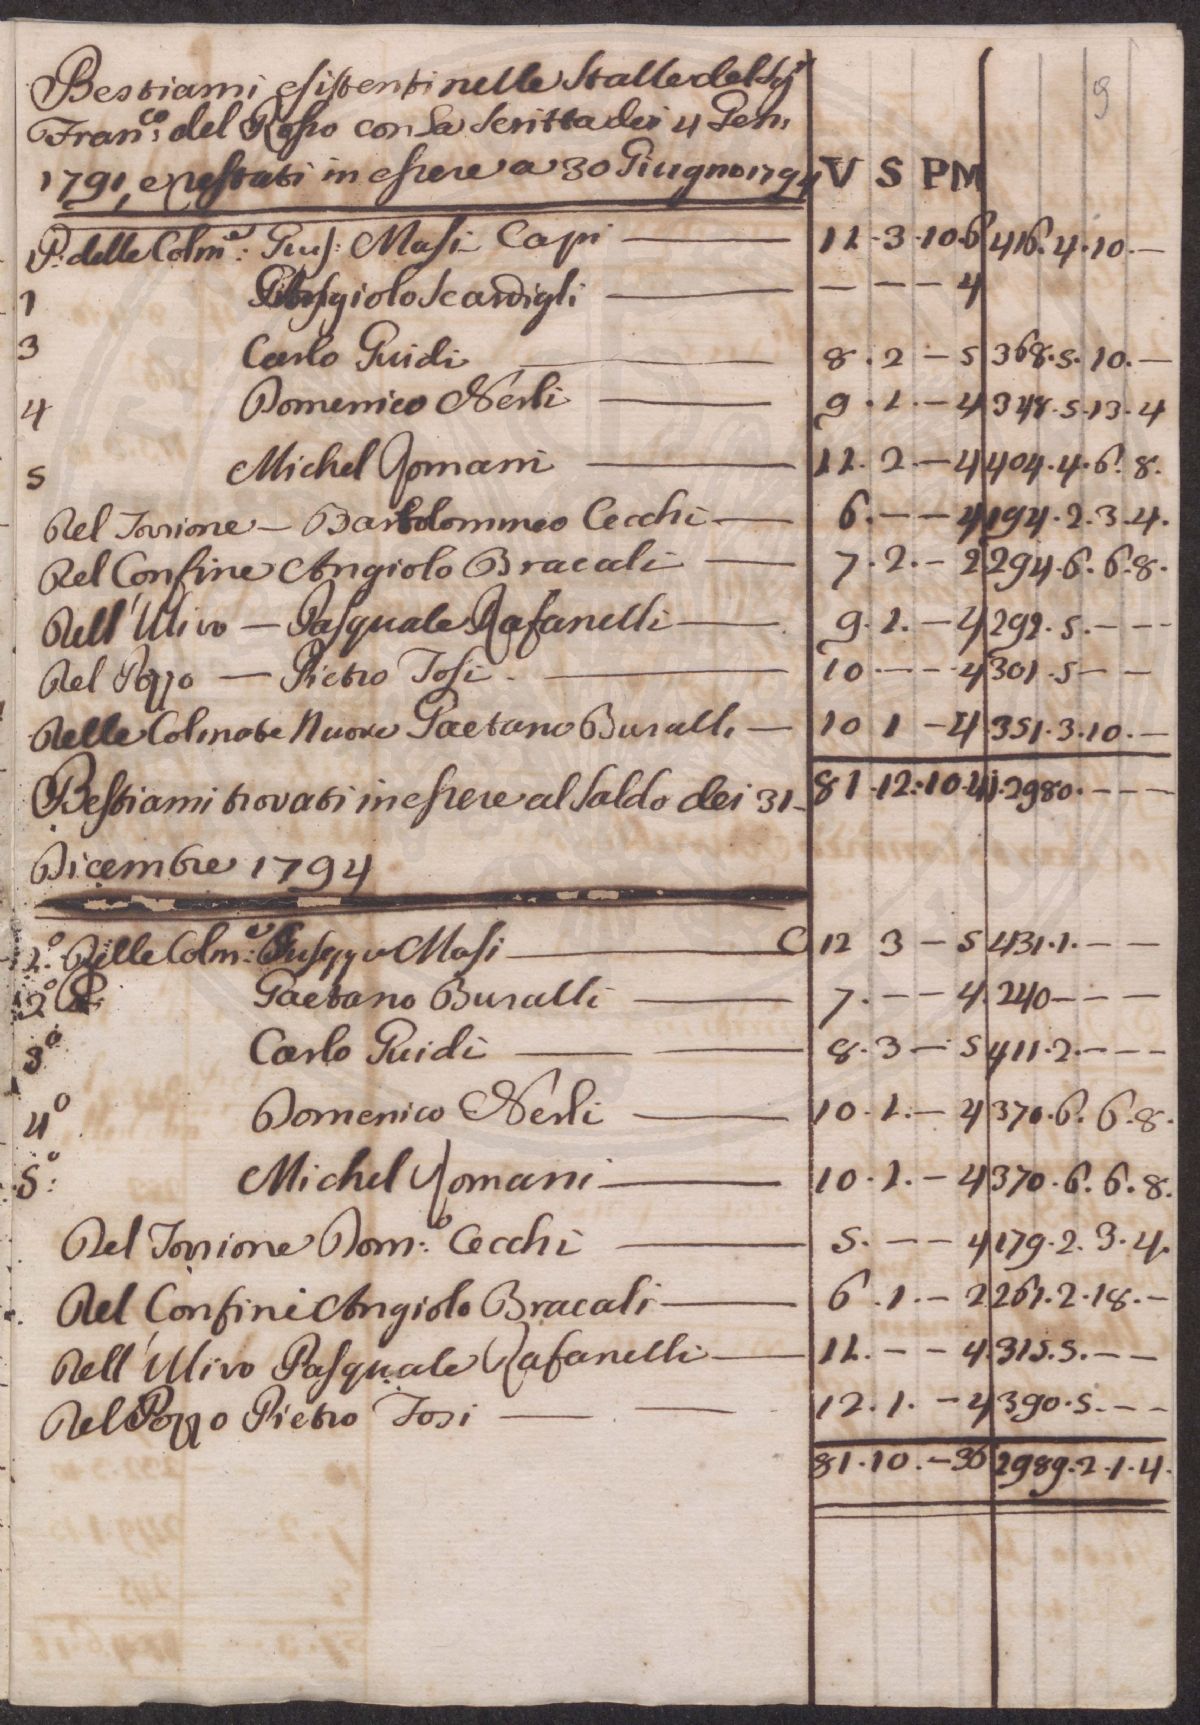 9
Bestiami esistenti nelle Stalle del Sig.r
Fran.co del Rosso con la Scritta dei 4 Gen:
1791, e restati in essere a 30 Giugno 1794 V S P M
P.o delle Colm.e: Gius: Masi Capi — 11 . 3 . 10 . 6 416. 4 . 10 . —
1 Angiolo Scardigli — — — — 4
3 Carlo Guidi — 8 . 2 — 5 368. 5. 10. —
4 Domenico Nerli — 9 . 1. — 4 348. 5. 13. 4
5 Michel Romani — 11. 2. — 4 404. 4. 6. 8.
Del Torrione — Bartolommeo Cecchi — 6. — — 4 194. 2. 3. 4.
Del Confine Angiolo Bracali — 7. 2. — 2 294. 6. 6. 8.
Dell'Ulivo — Pasquale Rafanelli — 9. 1. — 4 292. 5. — —
Del Pozzo — Pietro Tosi. — 10 — — 4 301. 5 — —
Delle Colmate Nuove Gaetano Buralli — 10 1 — 4 351. 3. 10. —
Bestiami trovati in essere al Saldo dei 31 81. 12. 10. 41. 2980. — — —
Dicembre 1794
1.o Delle Colm.e: Giuseppe Masi — C 12 3 — 5 431. 1. — —
2.o Gaetano Buralli — 7. — — 4. 240 — — —
3.o Carlo Guidi — — 8. 3 — 5 411. 2. — —
4.o Domenico Nerli — 10. 1. — 4 370. 6. 6. 8.
5.o: Michel Romani — 10. 1. — 4 370. 6. 6. 8.
Del Torrione Dom.o: Cecchi — 5. — — 4 179. 2. 3. 4.
Del Confine Angiolo Bracali — 6 . 1. — 2 261. 2. 18. —
Dell'Ulivo Pasquale Rafanelli — 11. — — 4. 315. 5. — —
Del Pozzo Pietro Tosi — — 12. 1. — 4 390. 5. — —
81. 10. — 36 2989. 2. 1. 4.